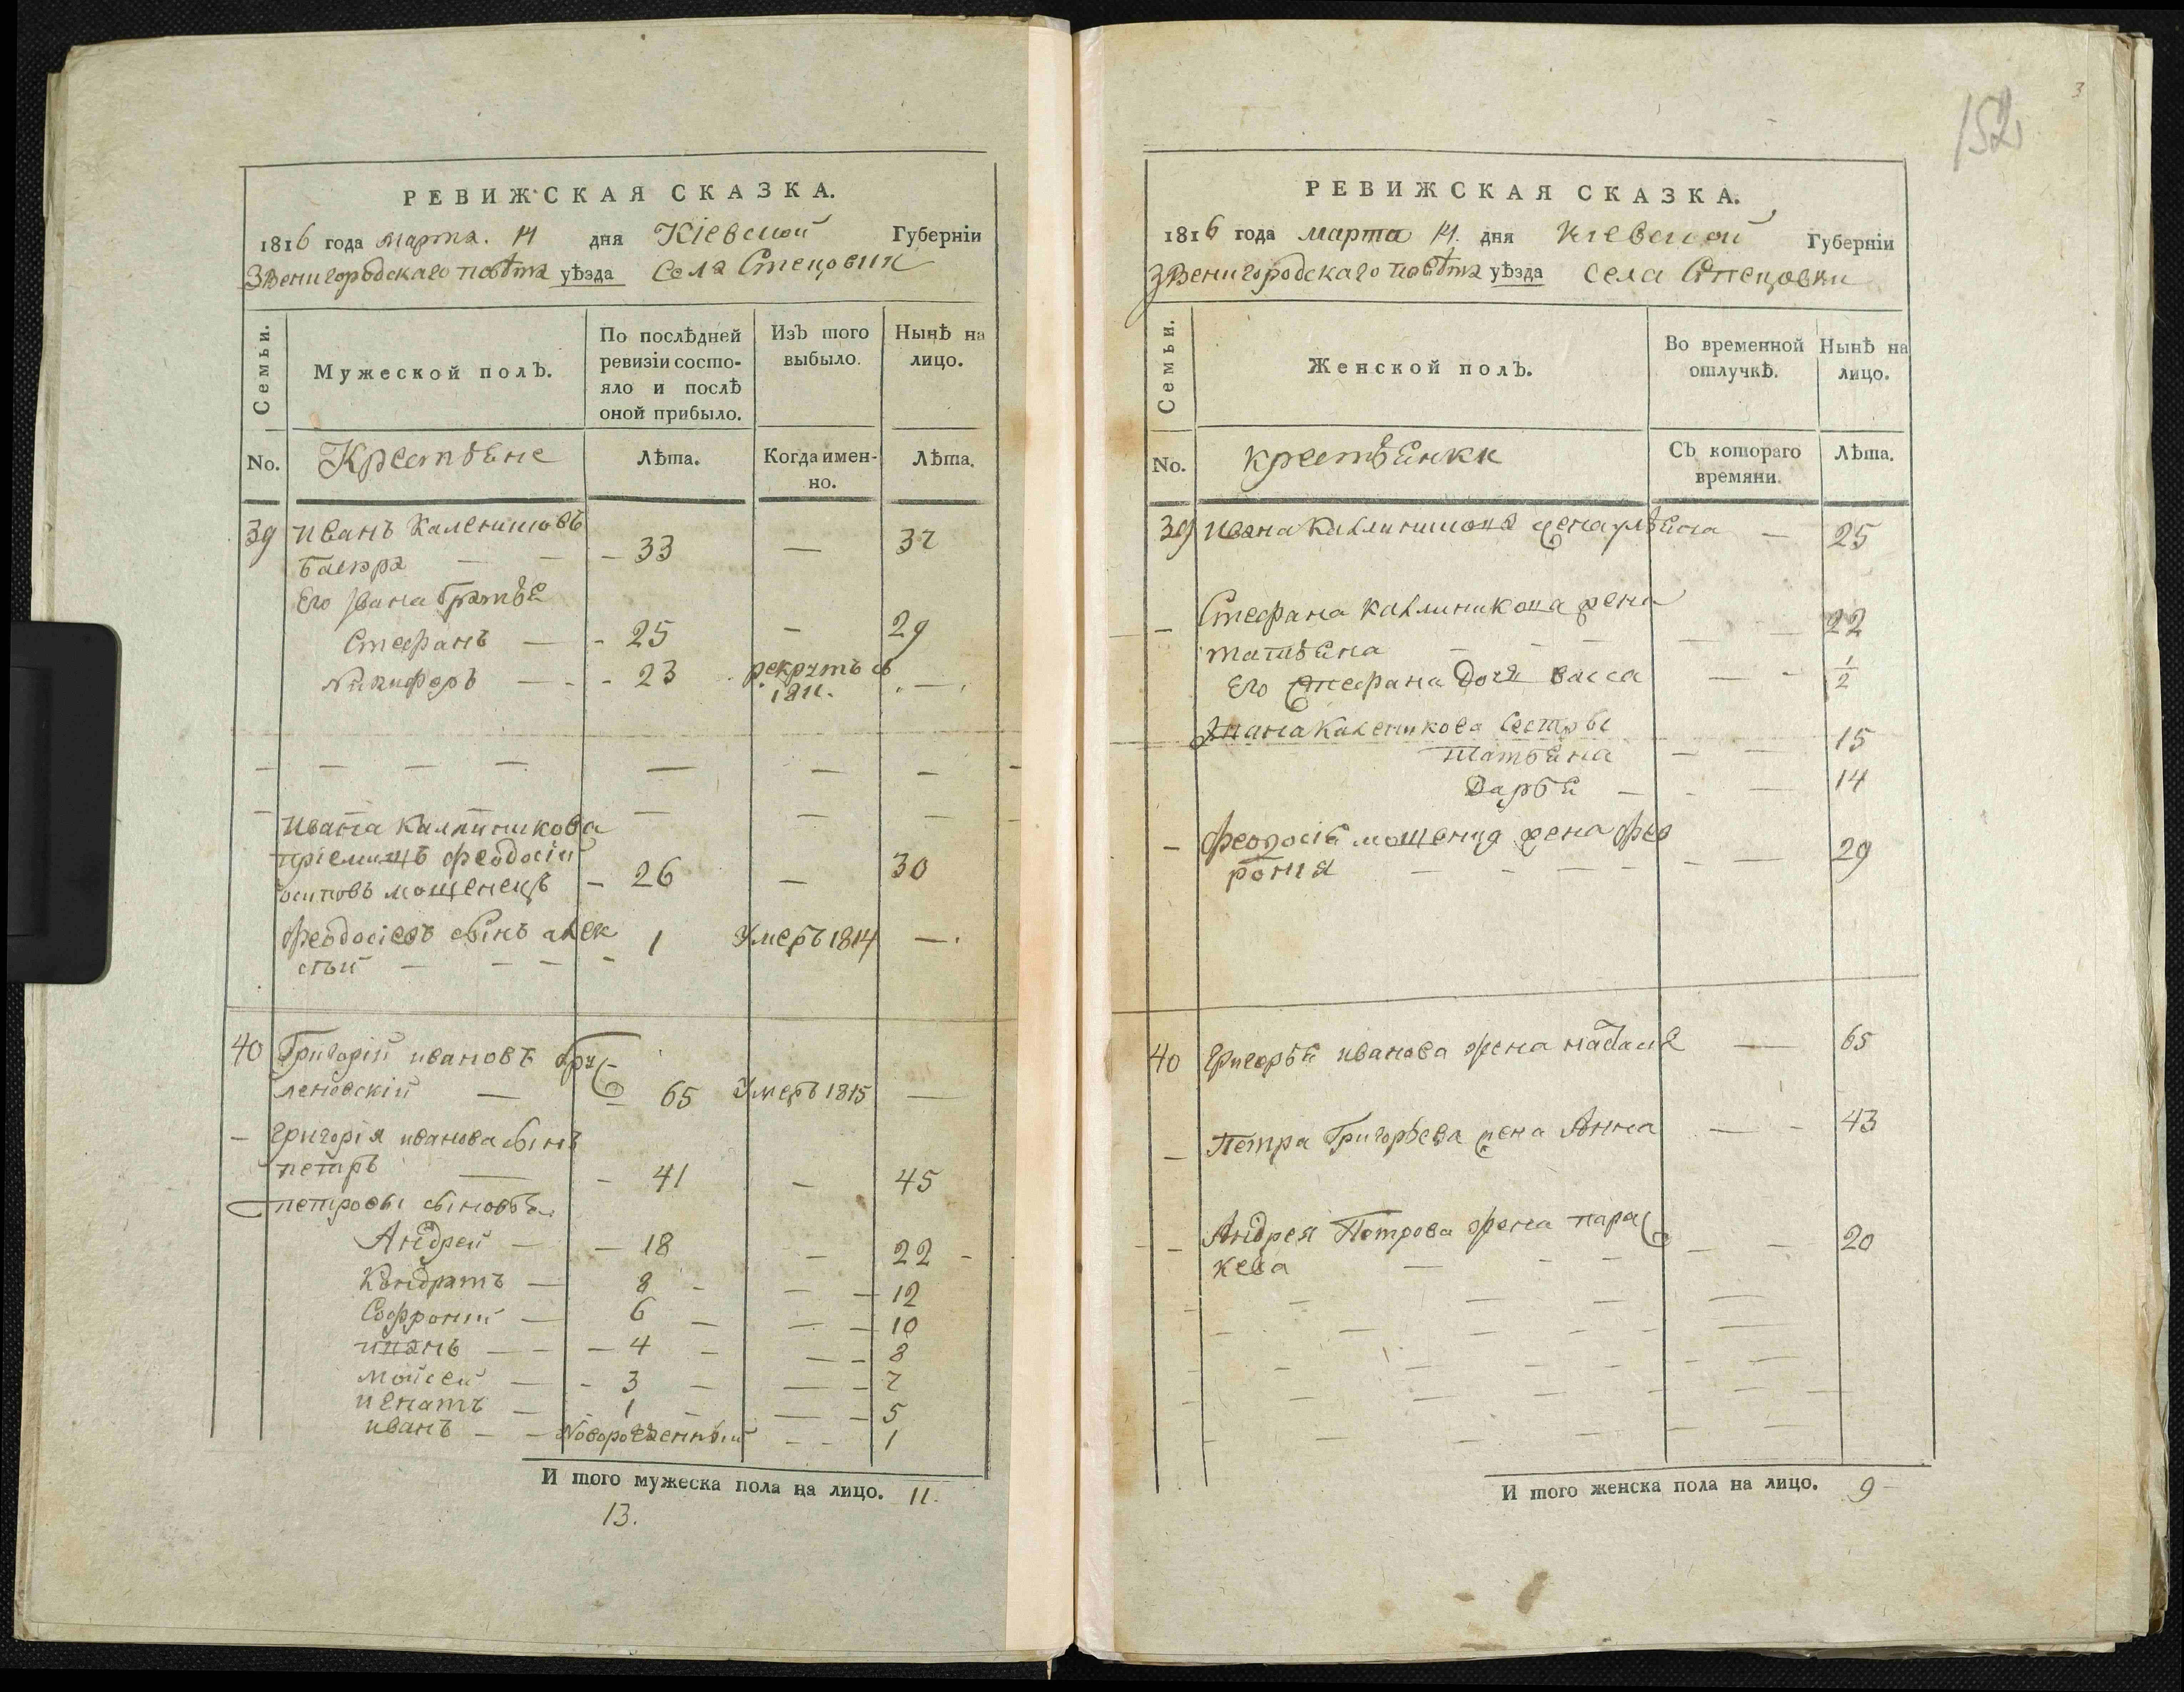 РЕВИЖСКАЯ СКАЗКА.
1816 года марта 14 дня Кіевской Губерніи
Звенигородскаго повѣта уѣзда Села Стецовки
Семьи.
Мужеской полъ.
По послѣдней ревизіи состо-
яло и послѣ
оной прибыло.
Изъ того
выбыло.
Нынѣ на
лицо.
No.
Крестьяне
Лѣта.
Когда имен-
но.
Лѣта.
39 Иванъ Калениковъ
— — 33 — 37
Его Ивана братья
Стефанъ — - 25 - 29
Никифоръ — - - 23 рекрутъ в 1811. . — .
— — — — — — —
— Ивана Калиникова — — —
пріемишъ Феодосій
осиповъ мощенецъ — 26 — 30
Феодосіевъ сынъ алек
сѣй — - — - 1 Умеръ 1814 — .
40 Григорій ивановъ
леновскій — — 65 Умеръ 1815 —
— григорія иванова сынъ
петръ — - 41 — 45
петровы сыновья
Андрей — — 18 — 22 -
Кондратъ — 8 - — — 12
Софроний — 6 — — — 10
иванъ — - — 4 - — - 8
Моисей — - 3 — — - 7
игнатъ — 1 - — — 5
иванъ — — Новорожденный - - 1
И того мужеска пола на лицо. 11.
13.
152
3
РЕВИЖСКАЯ СКАЗКА.
1816 года марта 14. дня Кіевской Губерніи
Звенигородскаго повѣта уѣзда села Стецовки
Семьи.
Женской полъ.
Во временной
отлучкѣ.
Нынѣ на
лицо.
No.
крестьянки
Съ котораго
времяни.
Лѣта.
39 Ивана Калиникова жена улѣяна — 25
— Стефана калиникова жена
татьяна — - — — — 22
Его Стефана дочь васса — - 1/2
Ивана Каленикова Сестры
татьяна — — 15
Дарья — - — 14
— Феодосія мощенца жена фев
рония — - — - - — 29
40 григорья иванова жена — 65
— Петра Григорьева жена Анна — - 43
— Андрея Петрова жена парас
кева — - — — — 20
И того женска пола на лицо. 9 -